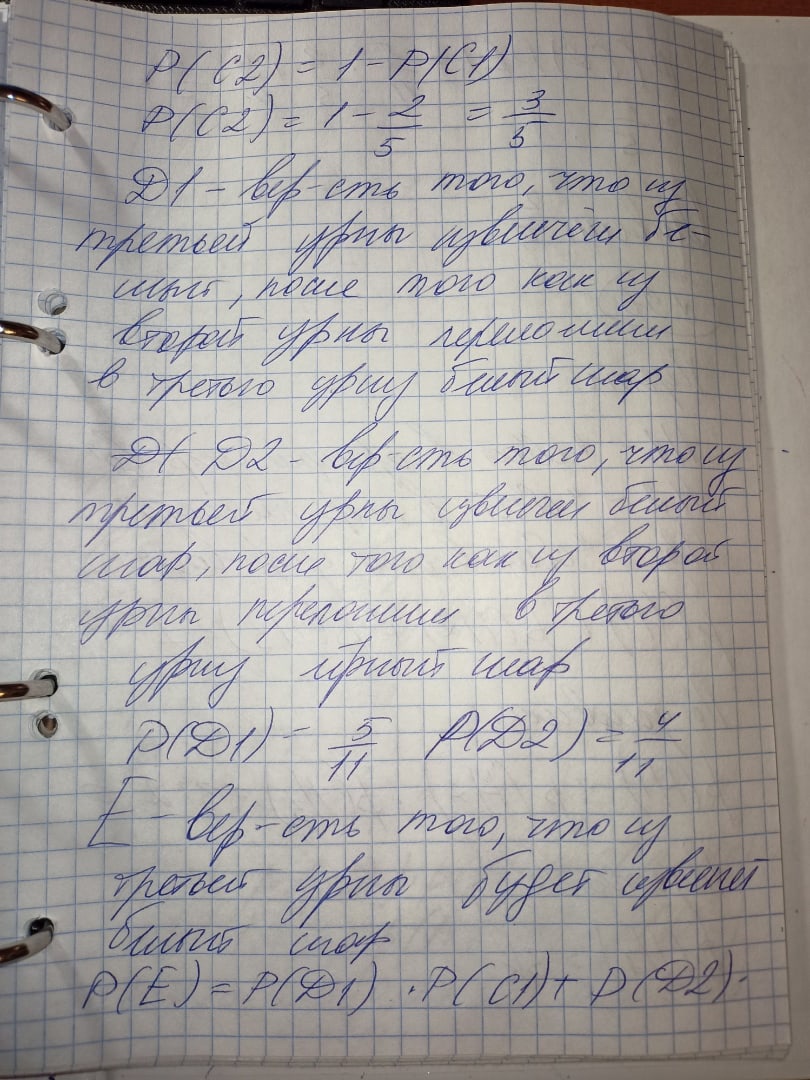 P(C2) = 1 - P(C1)
P(C2) = 1 - 2/5 = 3/5
D1 - вер-сть того, что из
третьей урны извлечён бе-
лый, после того как из
второй урны переложили
в третью урну белый шар
D1 D2 - вер-сть того, что из
третьей урны извлечен белый
шар, после того как из второй
урны переложили в третью
урну чёрный шар
P(D1) = 5/11 P(D2) = 4/11
E - вер-сть того, что из
третьей урны будет извлечен
белый шар
P(E) = P(D1) · P(C1) + P(D2) ·